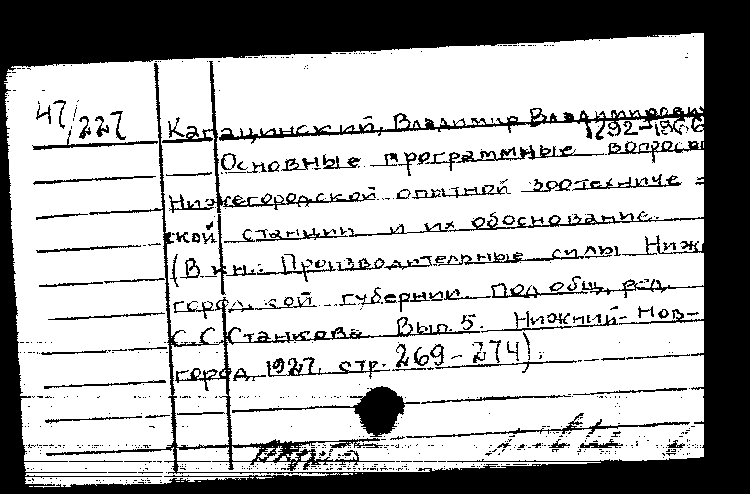 47/227
Капацинский, Владимир Владимирович
1892-1966
Основные программные вопросы
Нижегородской опытной зоотехниче=
ской станции и их обоснование.
(В кн.: Производительные силы Ниж
город. ской губернии. Под общ. ред.
С.С. Станкова. Вып. 5. Нижний-Нов-
город, 1927. стр. 269-274).